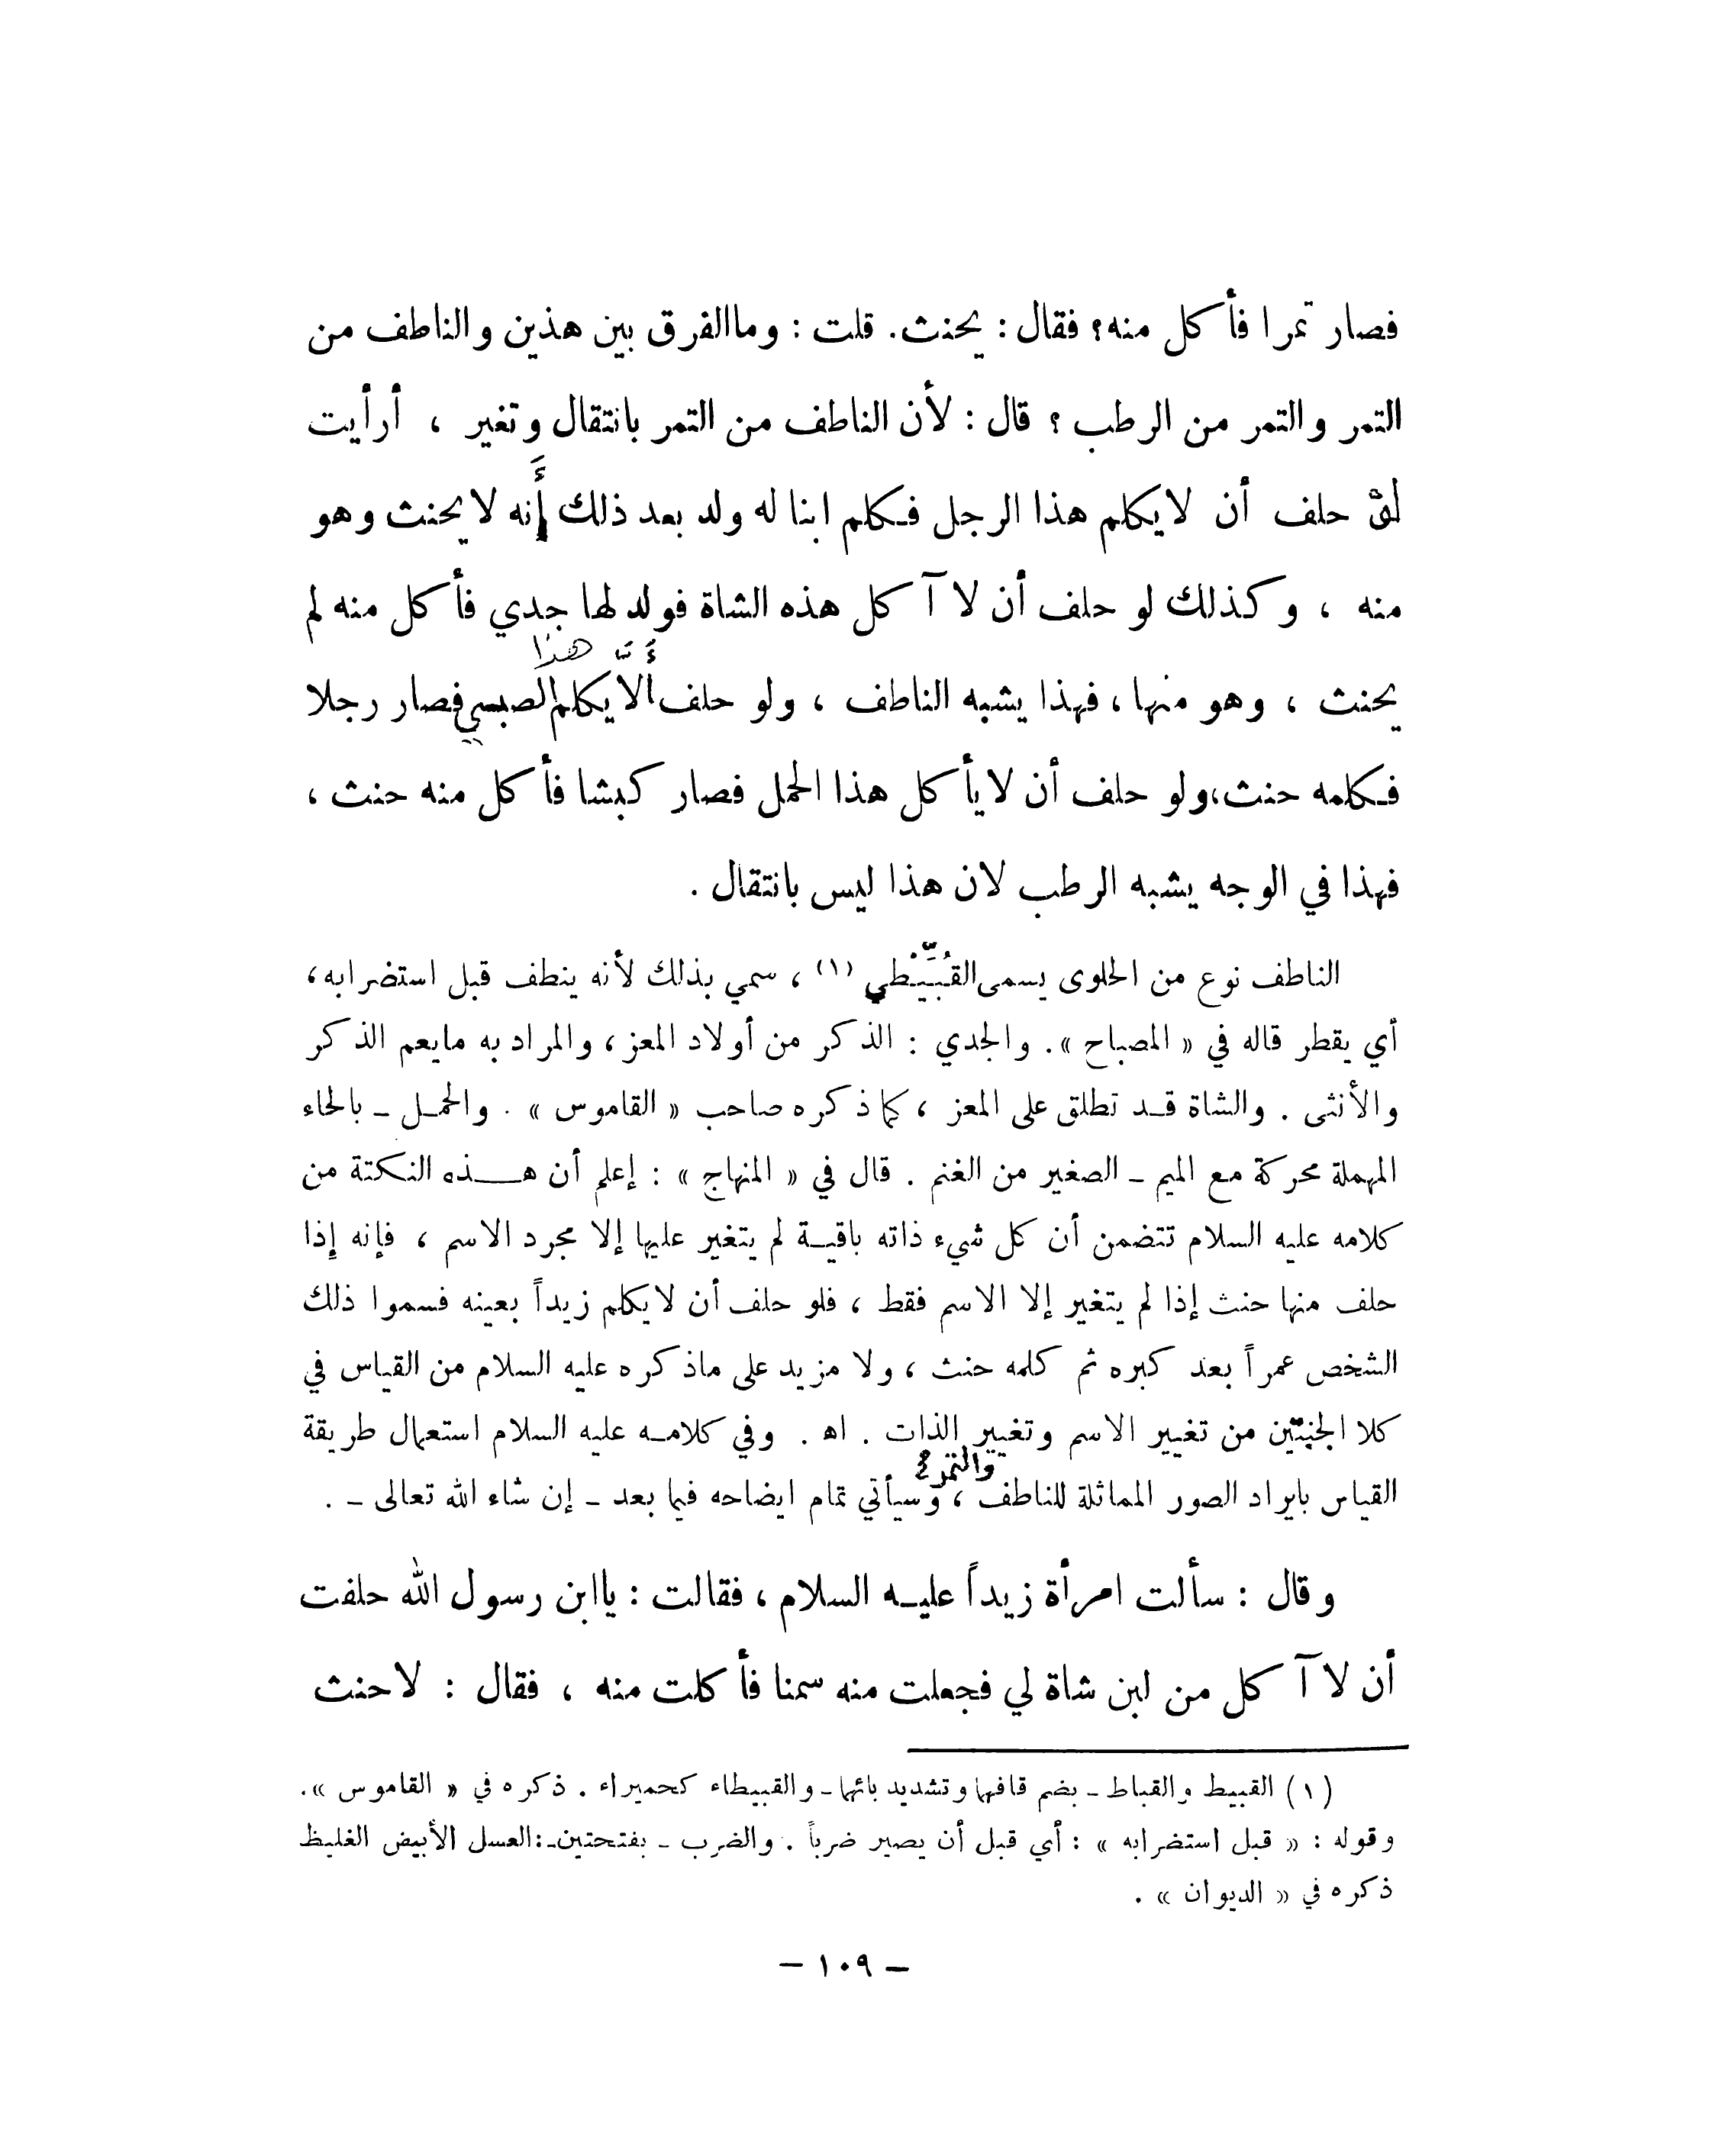 فصار تمرا فأكل منه؟ فقال : يحنث. قلت : وماالفرق بين هذين والناطف من
التمر والتمر من الرطب ؟ قال : لأن الناطف من التمر بانتقال وتغير ، أرأيت
لو حلف أن لايكلم هذا الرجل فكلم ابنا له ولد بعد ذلك أنه لايحنث وهو
منه ، وكذلك لو حلف أن لا آكل هذه الشاة فولد لها جدي فأكل منه لم
يحنث ، وهو منها ، فهذا يشبه الناطف ، ولو حلف ألا يكلم هذا الصبي فصار رجلا
فكلمه حنث،ولو حلف أن لايأكل هذا الحمل فصار كبشا فأكل منه حنث ،
فهذا في الوجه يشبه الرطب لان هذا ليس بانتقال .
الناطف نوع من الحلوى يسمى القُبَّيْطي (١) ، سمي بذلك لأنه ينطف قبل استضرابه،
أي يقطر قاله في « المصباح ». والجدي : الذكر من أولاد المعز ، والمراد به مايعم الذكر
والأنثى . والشاة قد تطلق على المعز ، كما ذكره صاحب « القاموس » . والحمل ـ بالحاء
المهملة محركة مع الميم ـ الصغير من الغنم . قال في « المنهاج » : إعلم أن هذه النكتة من
كلامه عليه السلام تتضمن أن كل شيء ذاته باقية لم يتغير عليها إلا مجرد الاسم ، فإنه إذا
حلف منها حنث إذا لم يتغير إلا الاسم فقط ، فلو حلف أن لايكلم زيداً بعينه فسموا ذلك
الشخص عمراً بعد كبره ثم كلمه حنث ، ولا مزيد على ماذكره عليه السلام من القياس في
كلا الجنبتين من تغيير الاسم وتغيير الذات . اه . وفي كلامه عليه السلام استعمال طريقة
القياس بايراد الصور المماثلة للناطف والتمر ، وسيأتي تمام ايضاحه فيما بعد ـ إن شاء الله تعالى ـ .
وقال : سألت امرأة زيداً عليه السلام ، فقالت : ياابن رسول الله حلفت
أن لا آكل من لبن شاة لي فجعلت منه سمنا فأكلت منه ، فقال : لاحنث
(١) القبيط والقباط ـ بضم قافهما وتشديد بائهما ـ والقبيطاء كحميراء . ذكره في « القاموس ».
وقوله : « قبل استضرابه » : أي قبل أن يصير ضرباً . والضرب ـ بفتحتين ـ:العسل الأبيض الغليظ
ذكره في « الديوان » .
– ١٠٩ –